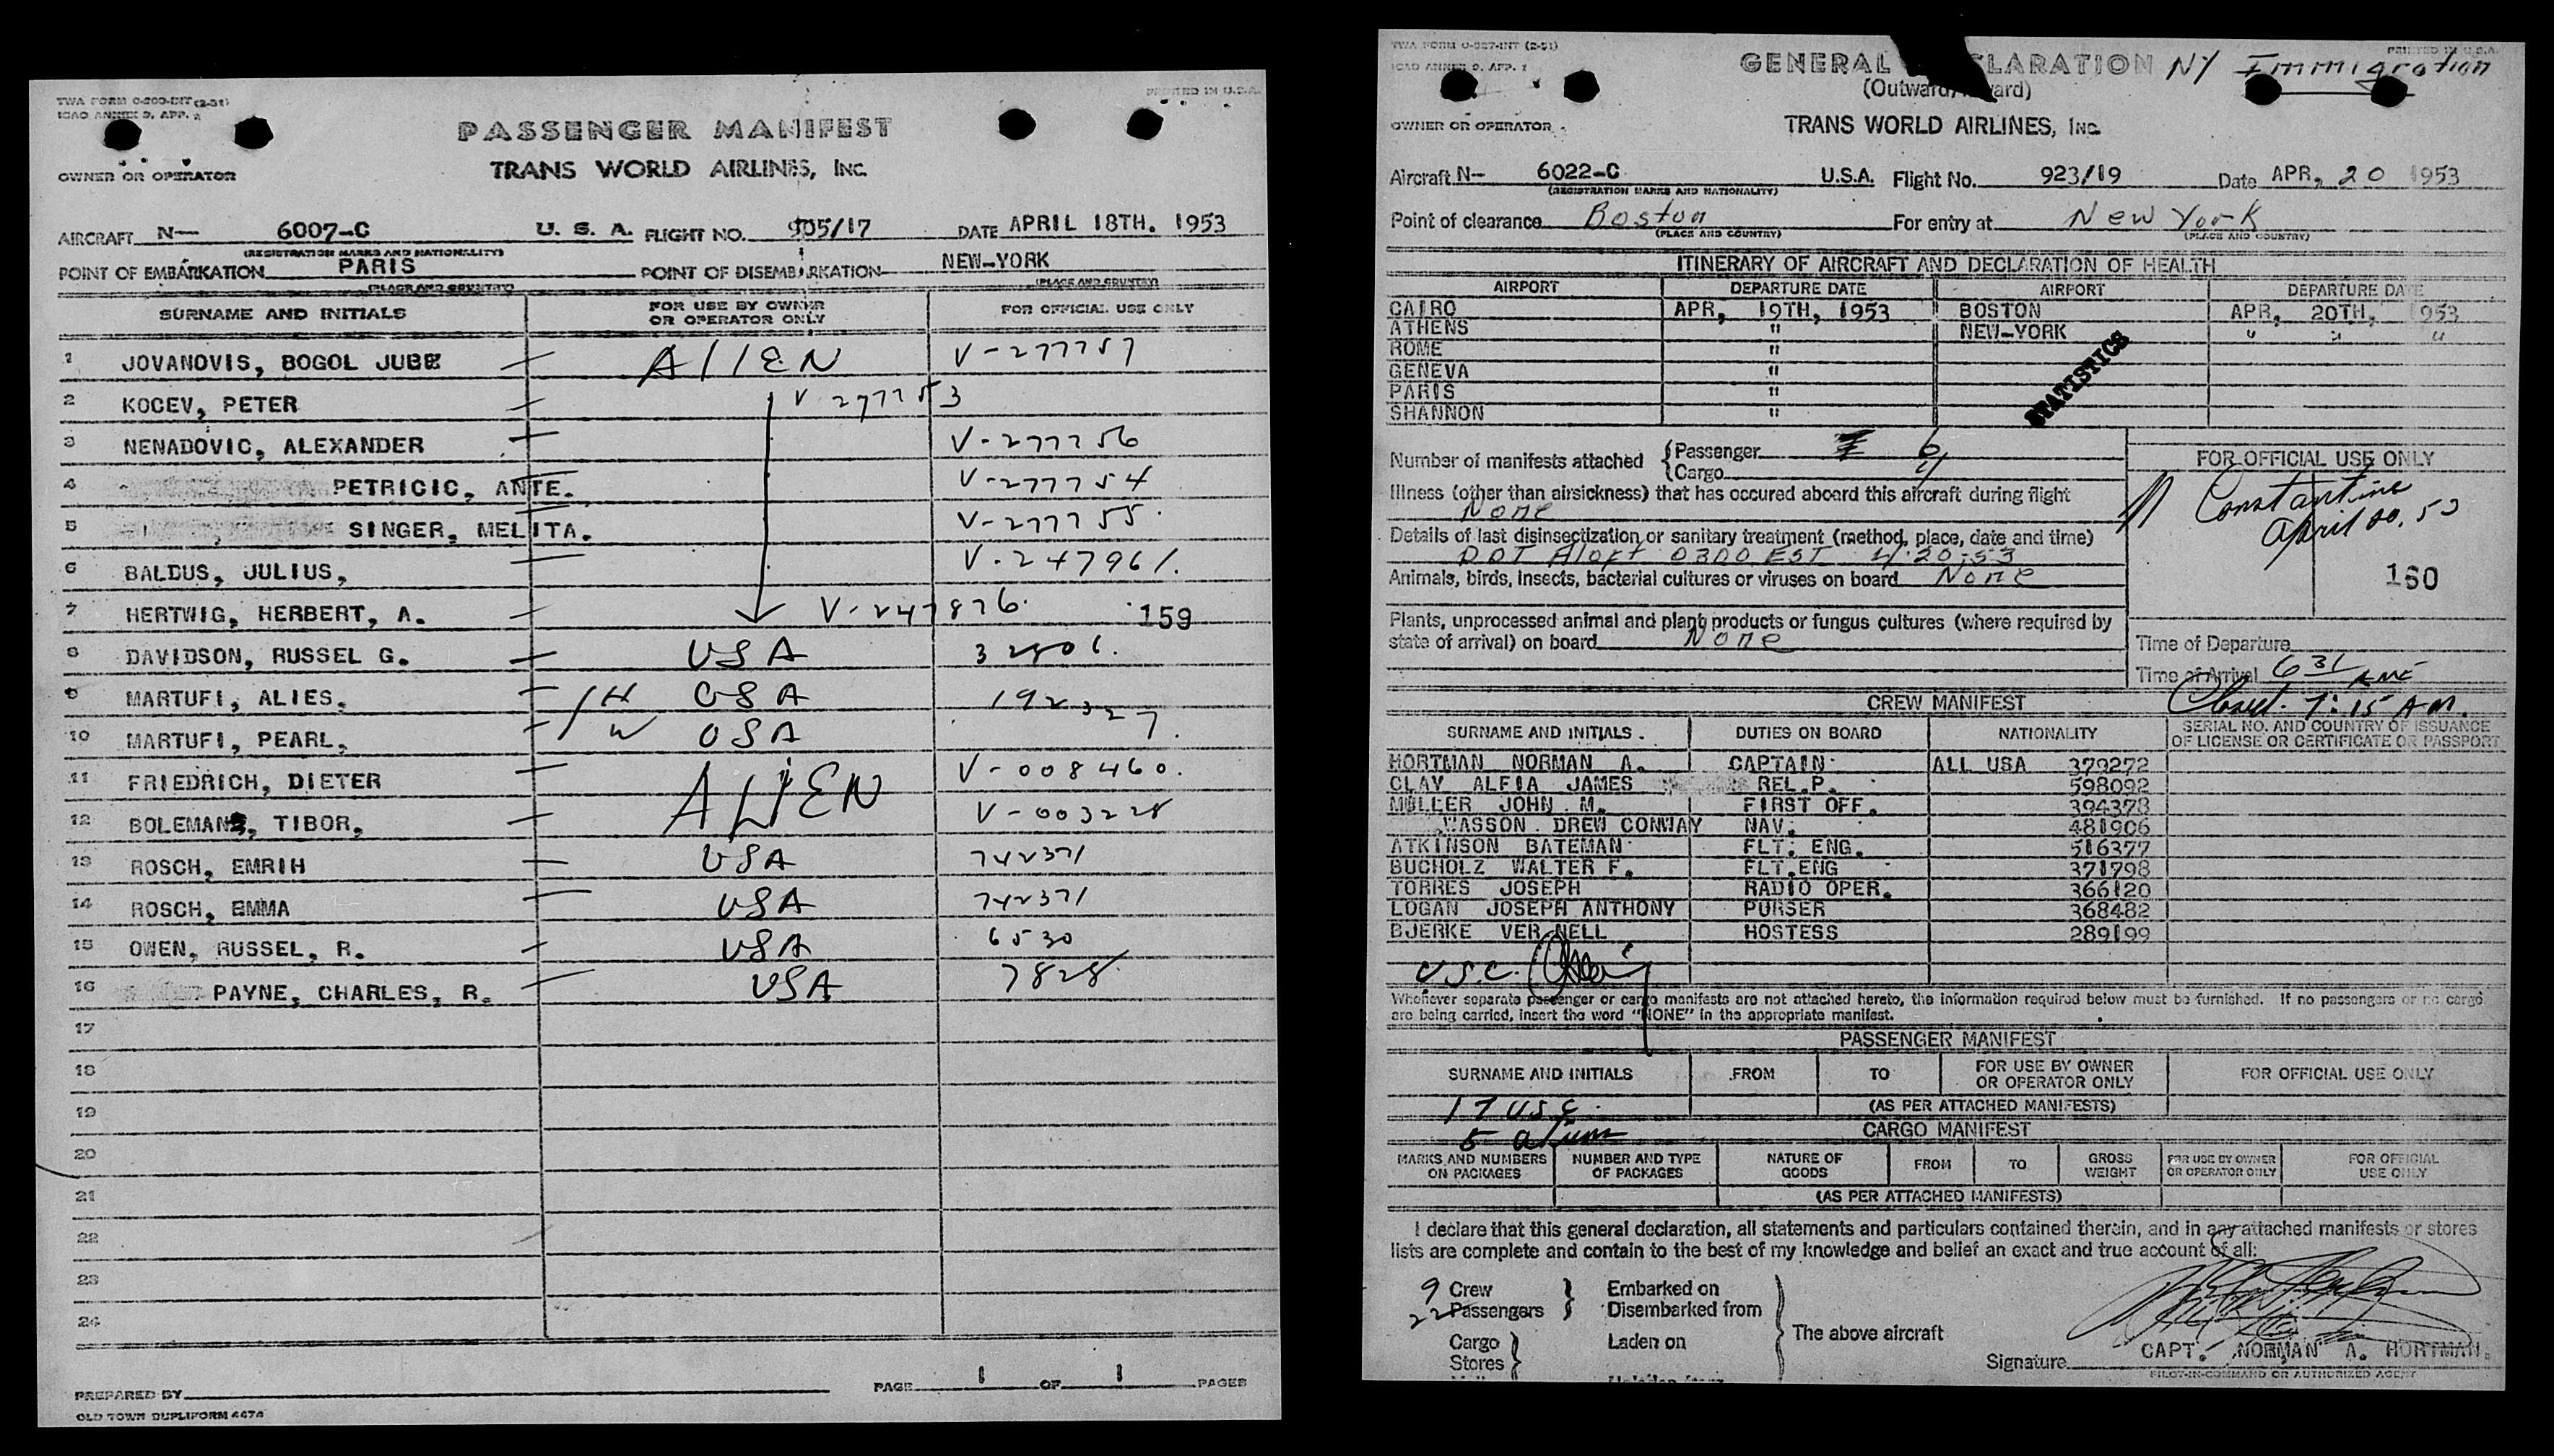 TWA FORM 0-200-INT (2-51)
ICAO ANNEX 9, APP. 2
PRINTED IN U.S.A.
PASSENGER MANIFEST
OWNER OR OPERATOR
TRANS WORLD AIRLINES, INC.
AIRCRAFT N— 6007-C U. S. A. FLIGHT NO. 905/17 DATE APRIL 18TH. 1953
(REGISTRATION MARKS AND NATIONALITY)
POINT OF EMBARKATION PARIS POINT OF DISEMBARKATION NEW-YORK
(PLACE AND COUNTRY) (PLACE AND COUNTRY)
SURNAME AND INITIALS FOR USE BY OWNER OR OPERATOR ONLY FOR OFFICIAL USE ONLY
1 JOVANOVIS, BOGOL JUBE — AlIEN V-277757
2 KOCEV, PETER — V-277753
3 NENADOVIC, ALEXANDER — V-277756
4 PETRICIC, ANTE. — V-277754
5 SINGER, MELITA. — V-277755.
6 BALDUS, JULIUS, — V-247961.
7 HERTWIG, HERBERT, A. — V-247876. 159
8 DAVIDSON, RUSSEL G. — USA
9 MARTUFI, ALIES. — H USA 192327
10 MARTUFI, PEARL, — W USA
11 FRIEDRICH, DIETER — ALIEN V-008460.
12 BOLEMAN, TIBOR, — V-003228
13 ROSCH, EMRIH — USA 742371
14 ROSCH, EMMA — USA 742371
15 OWEN, RUSSEL, R. — USA 6530
16 PAYNE, CHARLES, R. — USA 7828.
17
18
19
20
21
22
23
24
PREPARED BY PAGE 1 OF 1 PAGES
OLD TOWN DUPLIFORM 4474
TWA FORM 0-927-INT (2-51)
ICAO ANNEX 9, APP. 1
PRINTED IN U.S.A.
GENERAL CLARATION NY Immigration
(Outward/ ard)
OWNER OR OPERATOR TRANS WORLD AIRLINES, INC.
Aircraft N— 6022-C U.S.A. Flight No. 923/19 Date APR, 20 1953
(REGISTRATION MARKS AND NATIONALITY)
Point of clearance Boston For entry at New York
(PLACE AND COUNTRY) (PLACE AND COUNTRY)
ITINERARY OF AIRCRAFT AND DECLARATION OF HEALTH
AIRPORT DEPARTURE DATE AIRPORT DEPARTURE DATE
CAIRO APR, 19TH, 1953 BOSTON APR, 20TH, 1953
ATHENS " NEW-YORK " " "
ROME "
GENEVA "
PARIS "
SHANNON "
STATISTICS
Number of manifests attached {Passenger 6
{Cargo 4
FOR OFFICIAL USE ONLY
Illness (other than airsickness) that has occured aboard this aircraft during flight
None
Constantine
April 20. 53
Details of last disinsectization or sanitary treatment (method, place, date and time)
DDT Aloft 0300 EST 4-20-53
Animals, birds, insects, bacterial cultures or viruses on board None
160
Plants, unprocessed animal and plant products or fungus cultures (where required by
state of arrival) on board None
Time of Departure
Time of Arrival 6 31 AM
CREW MANIFEST Closed. 7:15 AM.
SURNAME AND INITIALS. DUTIES ON BOARD NATIONALITY SERIAL NO. AND COUNTRY OF ISSUANCE OF LICENSE OR CERTIFICATE OR PASSPORT
HORTMAN NORMAN A. CAPTAIN ALL USA 379272
CLAY ALFIA JAMES REL.P. 598092
MULLER JOHN M. FIRST OFF. 394378
WASSON DREW CONWAY NAV. 481906
ATKINSON BATEMAN FLT. ENG. 516377
BUCHOLZ WALTER F. FLT.ENG 371798
TORRES JOSEPH RADIO OPER. 366120
LOGAN JOSEPH ANTHONY PURSER 368482
BJERKE VER NELL HOSTESS 289199
U.S.C.
Whenever separate passenger or cargo manifests are not attached hereto, the information required below must be furnished. If no passengers or no cargo
are being carried, insert the word "NONE" in the appropriate manifest.
PASSENGER MANIFEST
SURNAME AND INITIALS FROM TO FOR USE BY OWNER OR OPERATOR ONLY FOR OFFICIAL USE ONLY
17 USC. (AS PER ATTACHED MANIFESTS)
5 alien CARGO MANIFEST
MARKS AND NUMBERS ON PACKAGES NUMBER AND TYPE OF PACKAGES NATURE OF GOODS FROM TO GROSS WEIGHT FOR USE BY OWNER OR OPERATOR ONLY FOR OFFICIAL USE ONLY
(AS PER ATTACHED MANIFESTS)
I declare that this general declaration, all statements and particulars contained therein, and in any attached manifests or stores
lists are complete and contain to the best of my knowledge and belief an exact and true account of all:
9 Crew } Embarked on
22 Passengers } Disembarked from
Cargo } Laden on The above aircraft
Stores }
Signature CAPT. NORMAN A. HORTMAN.
PILOT-IN-COMMAND OR AUTHORIZED AGENT